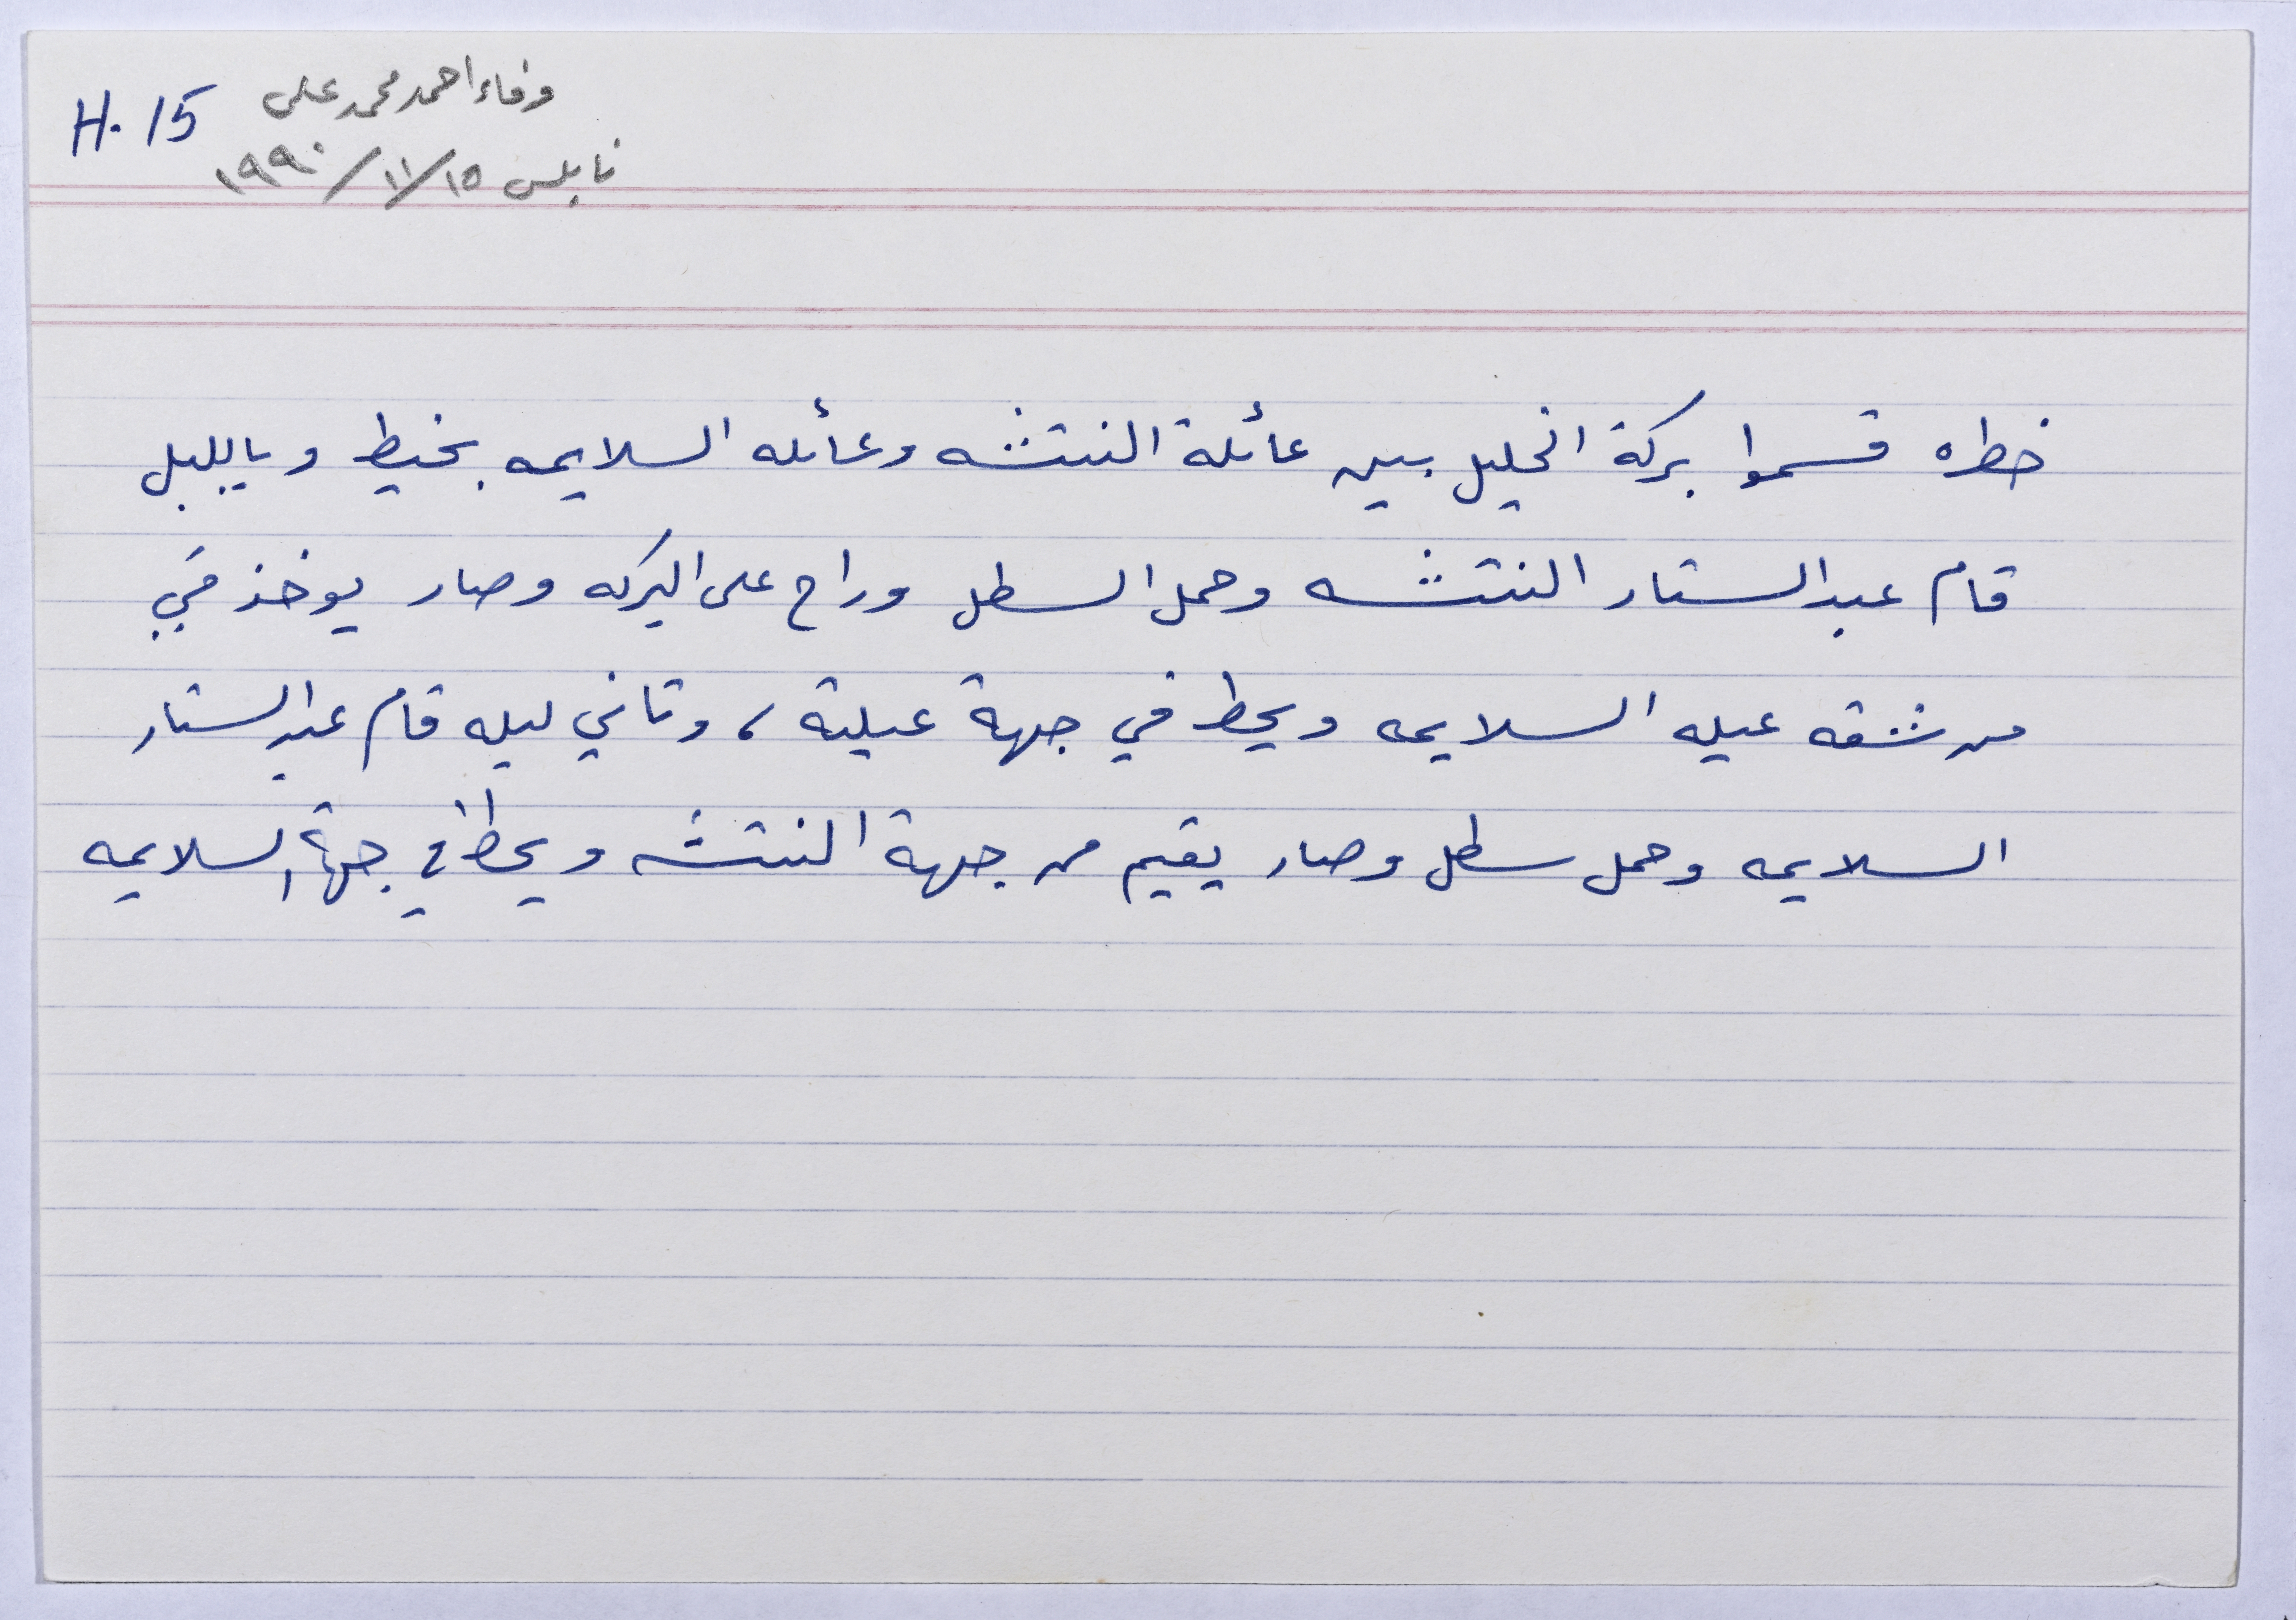 H. 15
وفاء احمد محمد علي
نابلس ١٥/١١/١٩٩٠
خطره قسموا بركة الخليل بين عائلة النتشه وعائله السلايمه بخيط وبالليل
قام عبد الستار النتشه وحمل السطل وراح على البركه وصار يوخذ مَي
من شقه عيله السلايمه ويحط في جهة عيلته ، وتاني ليله قام عبد الستار
السلايمه وحمل سطل وصار يقيم من جهة النتشه ويحط في جهة السلايمه